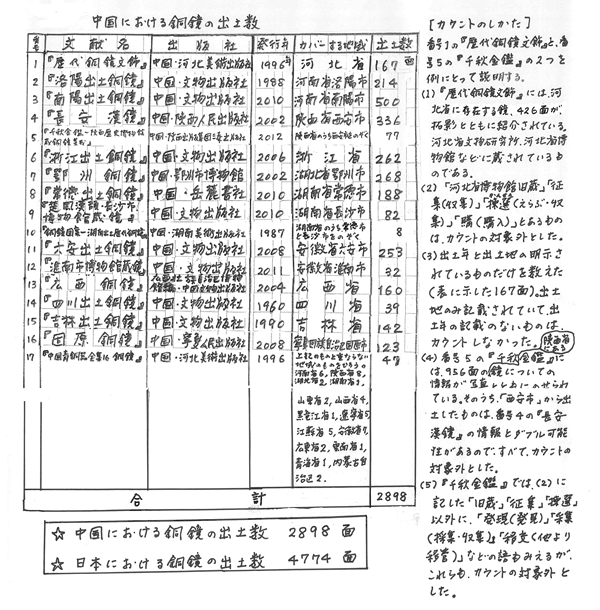 中国における銅鏡の出土数
番号 文献名 出版社 発行年 カバーする地域 出土数
1 『歴代銅鏡文飾』 中国・河北美術出版社 1996年 河北省 167面
2 『洛陽出土銅鏡』 中国・文物出版社 1988 河南省洛陽市 214
3 『南陽出土銅鏡』 中国・文物出版社 2010 河南省南陽市 500
4 『長安漢鏡』 中国・陝西人民出版社 2002 陝西省西安市 336
5 『千秋金鑑―陝西歴史博物館蔵銅鏡集成』 中国・陝西出版集団三秦出版社 2012 陝西省のうち西安市のぞく 77
6 『浙江出土銅鏡』 中国・文物出版社 2006 浙江省 262
7 『鄂州銅鏡』 中国・鄂州市博物館 2002 湖北省鄂州市 268
8 『常徳出土銅鏡』 中国・岳麓書社 2010 湖南省常徳市 188
9 『楚風漢韻・長沙市博物館蔵鏡』 中国・文物出版社 2010 湖南省長沙市 82
10 『銅鏡図案―湖南出土歴代銅鏡』 中国・湖南美術出版社 1987 湖南省のうち常徳市と長沙市をのぞく 8
11 『六安出土銅鏡』 中国・文物出版社 2008 安徽省六安市 253
12 『淮南市博物館蔵鏡』 中国・文物出版社 2011 安徽省淮南市 32
13 『広西銅鏡』 中国・文物出版社 2004 広西省 160
14 『四川出土銅鏡』 中国・文物出版社 1960 四川省 39
15 『吉林出土銅鏡』 中国・文物出版社 1990 吉林省 142
16 『固原銅鏡』 中国・寧夏人民出版社 2008 寧夏回族自治区固原市 123
17 『中国青銅器全集16銅鏡』 中国・河北美術出版社 1996 上記のものと重ならない地域のものをひろう 47
河南省6，陝西省8，
湖北省2，湖南省1，
山東省2，山西省4，
黒竜江省1，遼寧省5，
江蘇省5，安徽省7，
広東省2，雲南省1，
青海省1，内蒙古自
治区2．
合計 2898
☆ 中国における銅鏡の出土数 2898 面
☆ 日本における銅鏡の出土数 4774 面
[カウントのしかた]
番号1の『歴代銅鏡文飾』と、番
号5の『千秋金鑑』の2つを
例にとって説明する。
(1)『歴代銅鏡文飾』には、河
北省に存在する鏡、426面が、
拓影とともに紹介されている。
河北省文物研究所、河北省博
物館などに蔵されているも
のである。
(2)「河北省博物館旧蔵」「征
集(収集)」「揀選(えらぶ・収
集)」「購(購入)」とあるもの
は、カウントの対象外とした。
(3) 出土年と出土地の明示さ
れているものだけを数えた
(表に示した167面)。出土
地のみ記載されていて、出
土年の記載のないものは、
カウントしなかった。
(4) 番号5の『千秋金鑑』に
陝西省である
は、956面の鏡についての
情報が写真とともにのせられ
ている。そのうち、「西安市」から出
土したものは、番号4の『長安
漢鏡』の情報とダブル可能
性があるので、すべて、カウントの
対象外とした。
(5)『千秋金鑑』では、(2)に
記した「旧蔵」「征集」「揀選」
以外に、「発現(発見)」「采集
(採集・収集)」「移交(他より
移管)」などの語もみえるが、
これらも、カウントの対象外と
した。